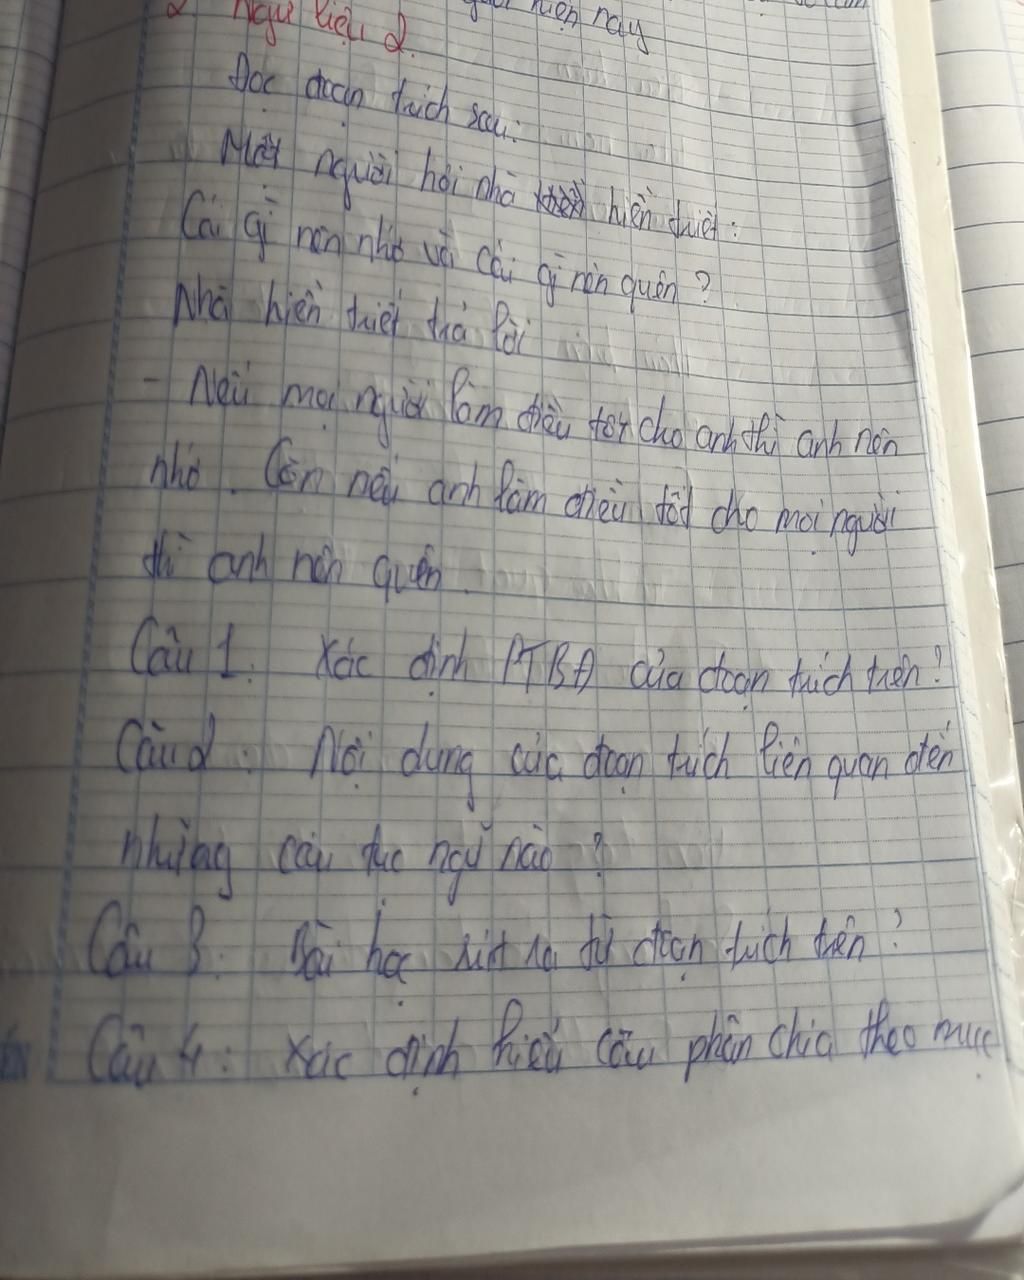 hiện nay
2 Ngữ liệu 2.
Đọc đoạn trích sau:
Một người hỏi nhà hiền triết:
Cái gì nên nhớ và cái gì nên quên?
Nhà hiền triết trả lời
- Nếu mọi người làm điều tốt cho anh thì anh nên
nhớ. Còn nếu anh làm điều tốt cho mọi người
thì anh nên quên.
Câu 1. Xác định PTBĐ của đoạn trích trên?
Câu 2: Nội dung của đoạn trích liên quan đến
những câu tục ngữ nào?
Câu 3: Bài học rút ra từ đoạn trích trên?
Câu 4: Xác định kiểu câu phân chia theo mục